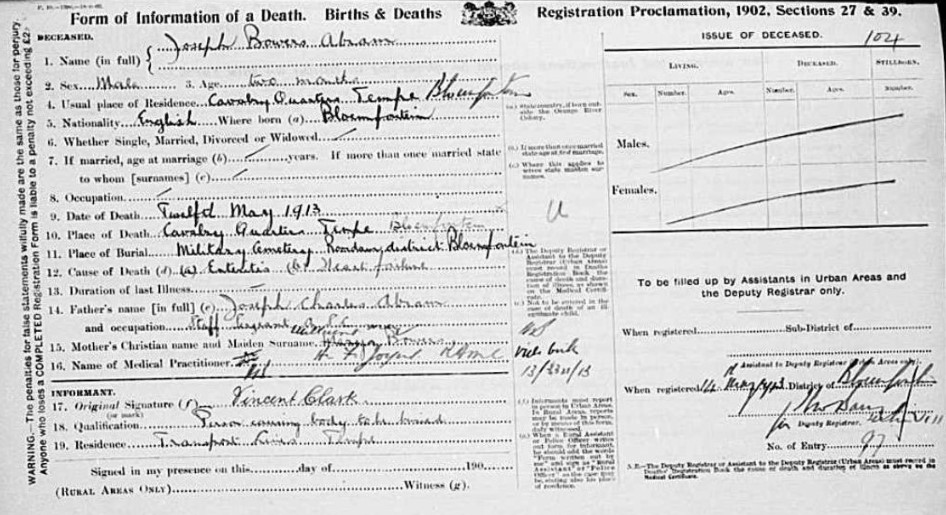 Form of Information of a Death. Births & Deaths Registration Proclamation, 1902, Sections 27 & 39.
WARNING.—The penalties for false statements wilfully made are the same as those for perjury.
Anyone who loses a COMPLETED Registration Form is liable to a penalty not exceeding £2.
DECEASED.
1. Name (in full) Joseph Bowers Abram
2. Sex Male 3. Age two months
4. Usual place of Residence Cavalry Quarters Tempe Bloemfontein
5. Nationality English Where born (a) Bloemfontein
6. Whether Single, Married, Divorced or Widowed
7. If married, age at marriage (b) years. If more than once married state
to whom [surnames] (c)
8. Occupation
9. Date of Death Twelfth May 1913
10. Place of Death Cavalry Quarters Tempe Bloemfontein
11. Place of Burial Military Cemetery, district Bloemfontein
12. Cause of Death (d) (a) Enteritis (b) Heart failure
13. Duration of last Illness
14. Father's name [in full] (e) Joseph Charles Abram
and occupation Staff Sergeant
15. Mother's Christian name and Maiden Surname Bowers
16. Name of Medical Practitioner
INFORMANT.
17. Original Signature (f) Vincent Clark
(or mark)
18. Qualification Person causing body to be buried
19. Residence Transport Lines Tempe
Signed in my presence on this day of 190
(RURAL AREAS ONLY) Witness (g).
(a.) State country, if born outside the Orange River Colony.
(b.) If more than once married state age at first marriage.
(c.) Where this applies to wives state maiden surnames.
(d.) The Deputy Registrar or Assistant to the Deputy Registrar (Urban Areas) must record in Deaths Registration Book the cause of death and duration of illness, as shown on the Medical Certificate.
(e.) Not to be entered in the case of death of an illegitimate child.
13/3211/13
(f.) Informants must report in person in Urban Areas. In Rural Areas, reports may be made in person, or by means of this form, duly witnessed.
(g.) When a Rural Assistant or Police Officer writes out form for informant, he should add the words "Form written out by me" and sign as "Rural Assistant" or "Police Officer" as the case may be, stating also his place of residence.
ISSUE OF DECEASED. 104
LIVING. DECEASED. STILLBORN.
Sex. Number. Ages. Number. Ages. Number.
Males.
Females.
To be filled up by Assistants in Urban Areas and
the Deputy Registrar only.
When registered Sub-District of
Assistant to Deputy Registrar (Urban Areas only).
When registered 14 May 1913 District of Bloemfontein
Deputy Registrar.
No. of Entry 97
N.B.—The Deputy Registrar or Assistant to the Deputy Registrar (Urban Areas) must record in
Deaths' Registration Book the cause of death and duration of illness as shown on the
Medical Certificate.